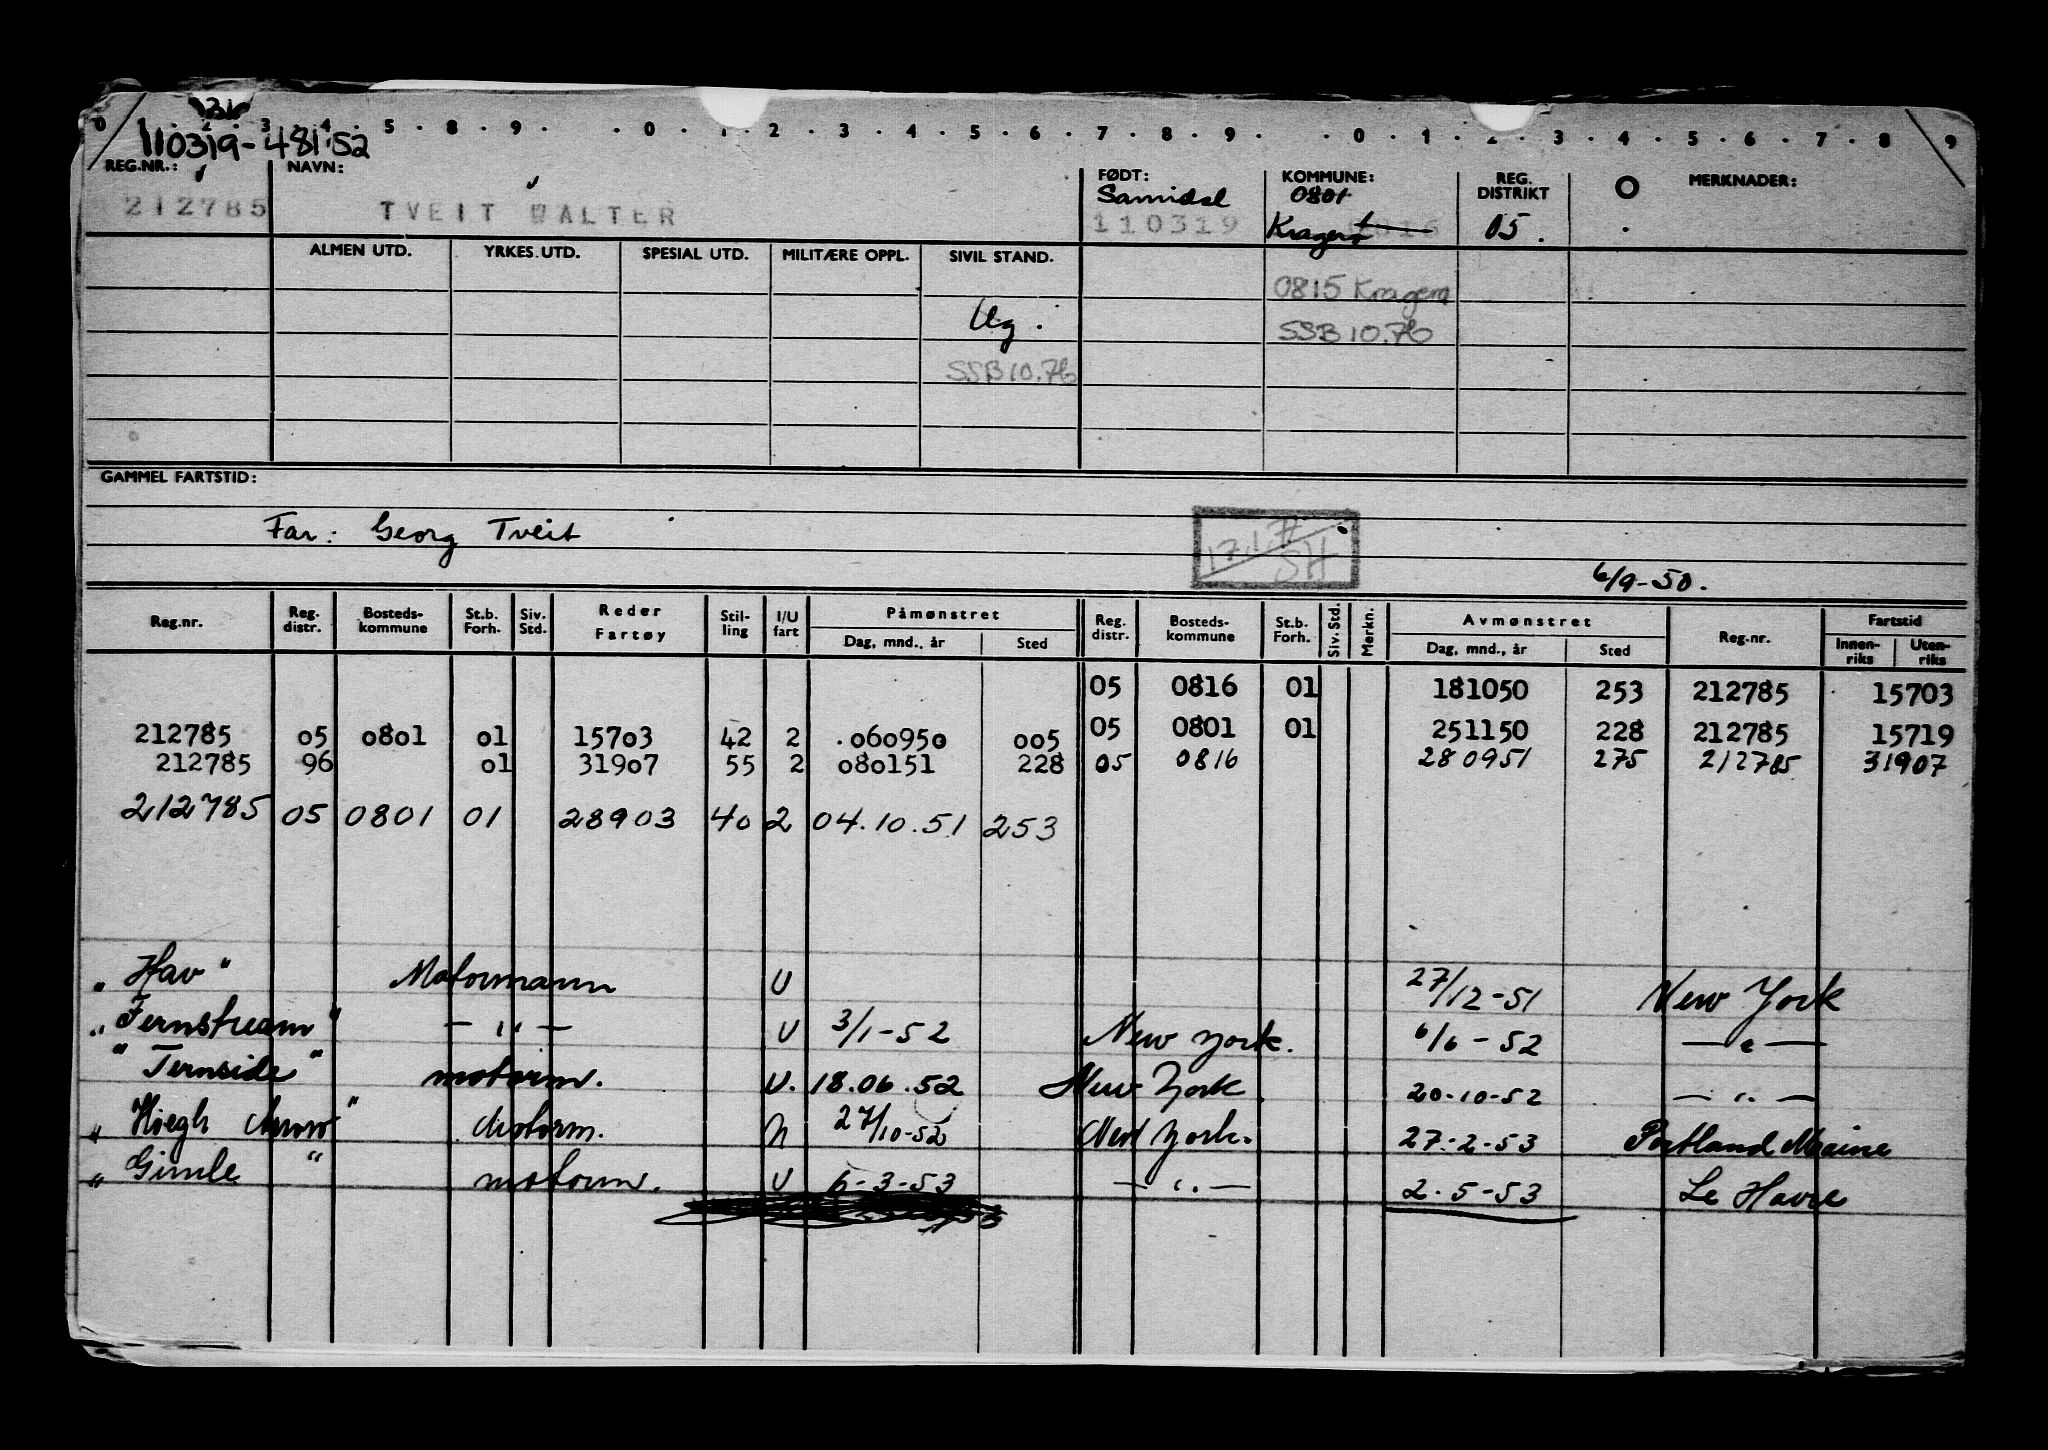 0 1 2 3 4 5 . 8 . 9 . . 0 . 1 . 2 . 3 . 4 . 5 . 6 . 7 . 8 . 9 . . 0 . 1 . 2 . 3 . 4 . 5 . 6 . 7 . 8 . 9
110319-481.52
REG.NR.: NAVN: FØDT: KOMMUNE: REG. DISTRIKT MERKNADER:
Sannidal 0801
212785 TVEIT WALTER 110319 Kragerø 0816 05.
ALMEN UTD. YRKES.UTD. SPESIAL UTD. MILITÆRE OPPL. SIVIL STAND.
0815 Kragerø
Ug. SSB 10.76
SSB 10.76
GAMMEL FARTSTID:
Far: Georg Tveit
SH
6/9-50.
Reg.nr. Reg. distr. Bosteds- kommune St.b. Forh. Siv. Std. Reder Fartøy Stil- ling I/U fart Påmønstret Dag, mnd., år Sted Reg. distr. Bosteds- kommune St.b. Forh. Siv. Std. Merkn. Avmønstret Dag, mnd., år Sted Reg.nr. Fartstid Innen- riks Uten- riks
05 0816 01 181050 253 212785 15703
212785 05 0801 01 15703 42 2 .060950 005 05 0801 01 251150 228 212785 15719
212785 96 01 31907 55 2 080151 228 05 0816 280951 275 212785 31907
212785 05 0801 01 28903 40 2 04.10.51 253
"Hav" Motormann U 27/12-51 New York
"Fernstream" — " — U 3/1-52 New York. 6/6-52 — " —
"Fernside" motorm. U. 18.06.52 New York 20-10-52 — " —
"Høegh Arrow" Motorm. U 27/10-52 New York. 27-2-53 Portland Maine
"Gimle" motorm. U 6-3-53 — " — 2-5-53 Le Havre